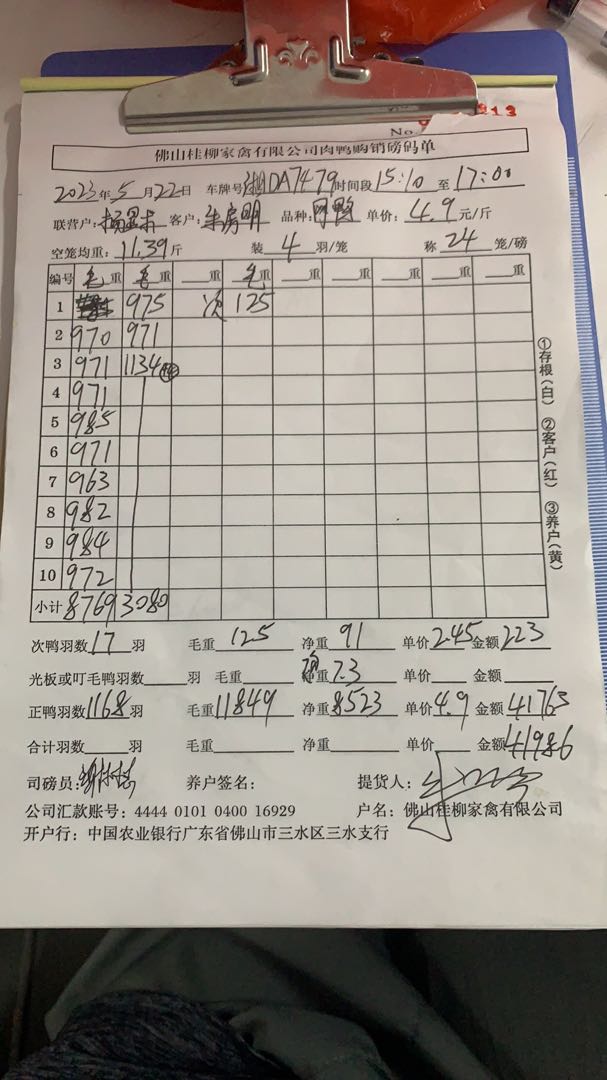 No 813
佛山桂柳家禽有限公司肉鸭购销磅码单
2023年5月22日 车牌号湘DA7479时间段15:10 至17:00
联营户: 客户:朱房明 品种: 单价:4.9元/斤
空笼均重:11.39斤 装4羽/笼 称24笼/磅
编号 毛重 毛重 重 毛重 重 重 重 重
1 975 次 125
2 970 971
3 971 1134
4 971
5 985
6 971
7 963
8 982
9 984
10 972
小计 8769 3080
①存根(白) ②客户(红) ③养户(黄)
次鸭羽数17羽 毛重125 净重91 单价2.45金额223
光板或叮毛鸭羽数 羽 毛重 重7.3 单价 金额
正鸭羽数1168羽 毛重11849 净重8523 单价4.9金额41763
合计羽数 羽 毛重 净重 单价 金额41986
司磅员: 养户签名: 提货人:
公司汇款账号:4444 0101 0400 16929 户名:佛山桂柳家禽有限公司
开户行:中国农业银行广东省佛山市三水区三水支行